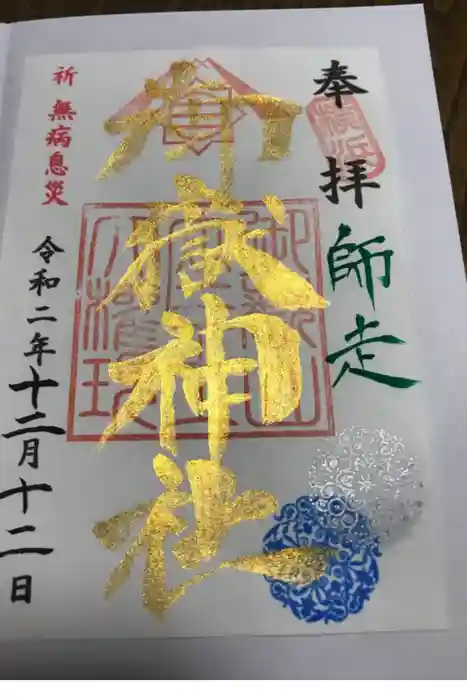 奉拝
横浜
師走
御嶽神社
祈 無病息災
令和二年十二月十二日